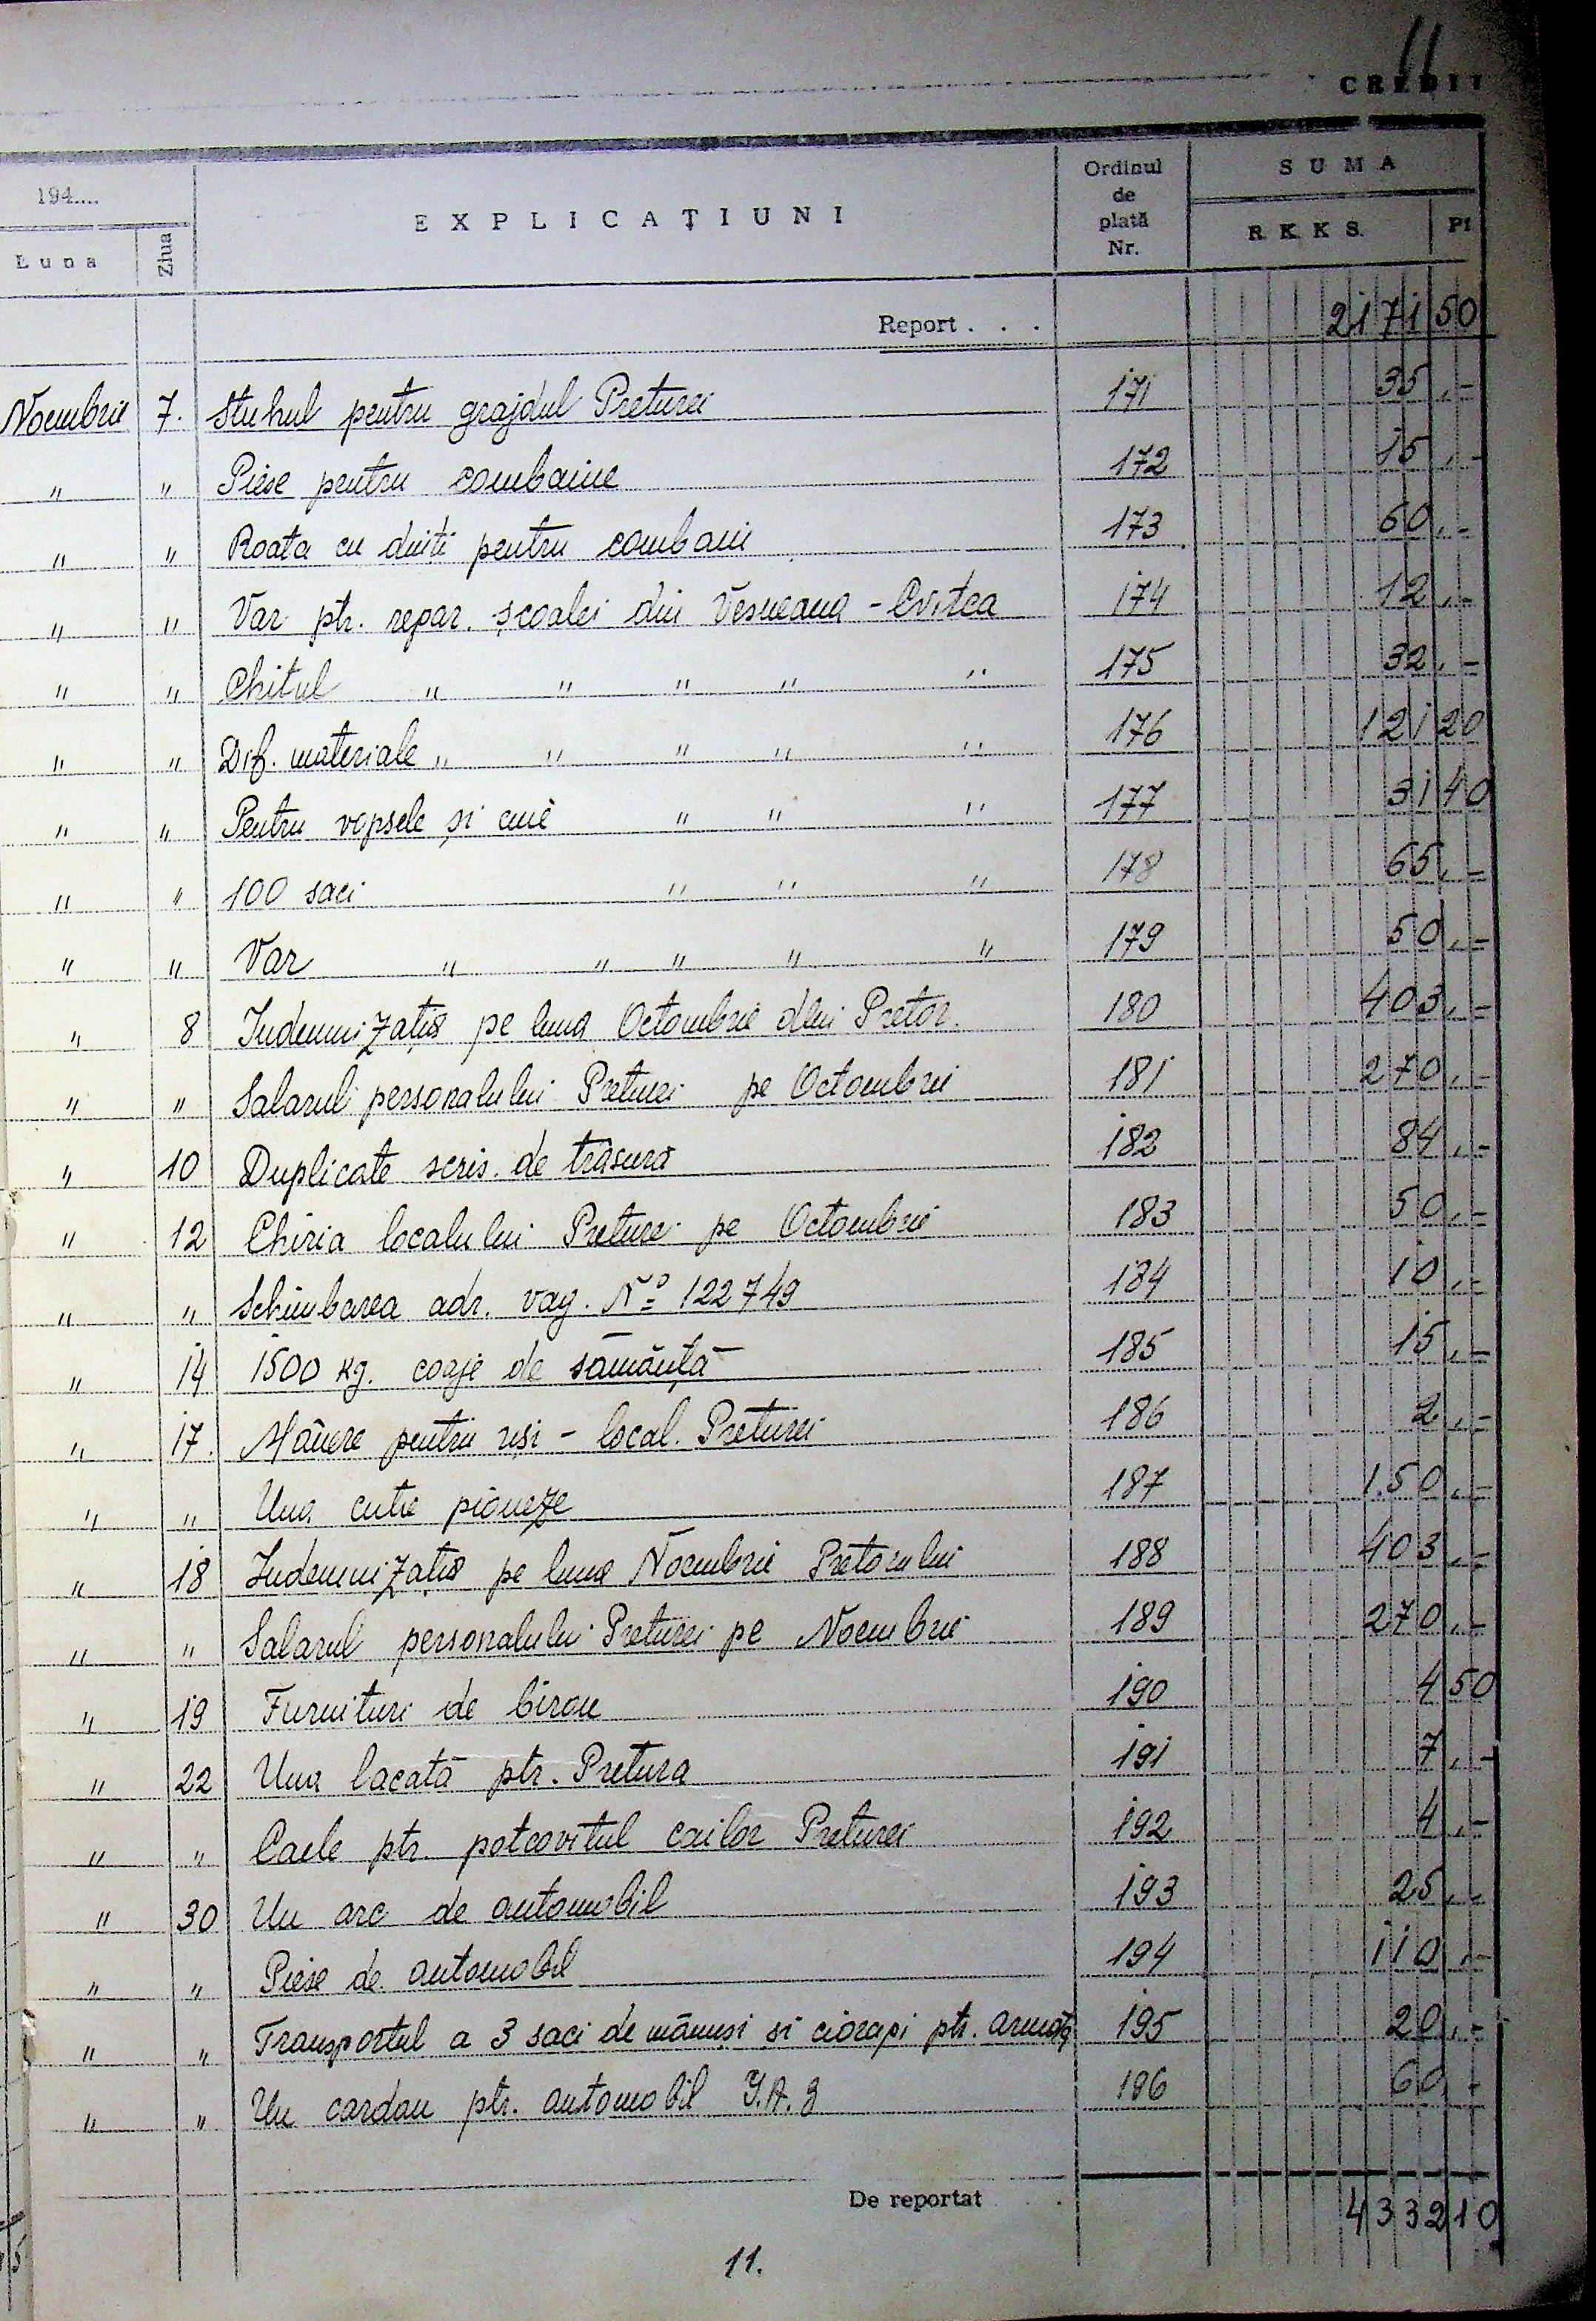 11
CREDIT
194....
Luna Ziua EXPLICAȚIUNI Ordinul de plată Nr. SUMA R.K.K.S. Pf.
Report . . . 2171 50
Noembrie 7. Stuhul pentru grajdul Preturei 171 35,-
" " Piese pentru combaine 172 15,-
" " Roata cu dinți pentru combain 173 60,-
" " Var ptr. repar. școalei din Vesneana - 174 12,-
" " Chitul " " " " " 175 32,-
" " Dif. materiale " " " " " 176 121 20
" " Pentru vopsele și cuie " " " 177 31 40
" " 100 saci " " " 178 65,-
" " Var " " " " " 179 50,-
" 8 Indemnizația pe luna Octombrie dlui Pretor. 180 403,-
" " Salarul personalului Preturei pe Octombrie 181 270,-
" 10 Duplicate scris. de trăsură 182 84,-
" 12 Chiria localului Preturei pe Octombrie 183 50,-
" " Schimbarea adr. vag. Nº 122749 184 10,-
" 14 1500 kg. coaje de sămânță 185 15,-
" 17. Mânere pentru uși - local. Preturei 186 2,-
" " Una cutie pioneze 187 1.50,-
" 18 Indemnizația pe luna Noembrie Pretorului 188 403,-
" " Salarul personalului Preturei pe Noembrie 189 270,-
" 19 Furnituri de birou 190 4 50
" 22 Una lacată ptr. Pretura 191 7,-
" " Caele ptr. potcovitul cailor Preturei 192 4,-
" 30 Un arc de automobil 193 25,-
" " Piese de automobil 194 110,-
" " Transportul a 3 saci de mănuși și ciorapi ptr. armată 195 20,-
" " Un cardan ptr. automobil 196 60,-
De reportat 4332 10
11.